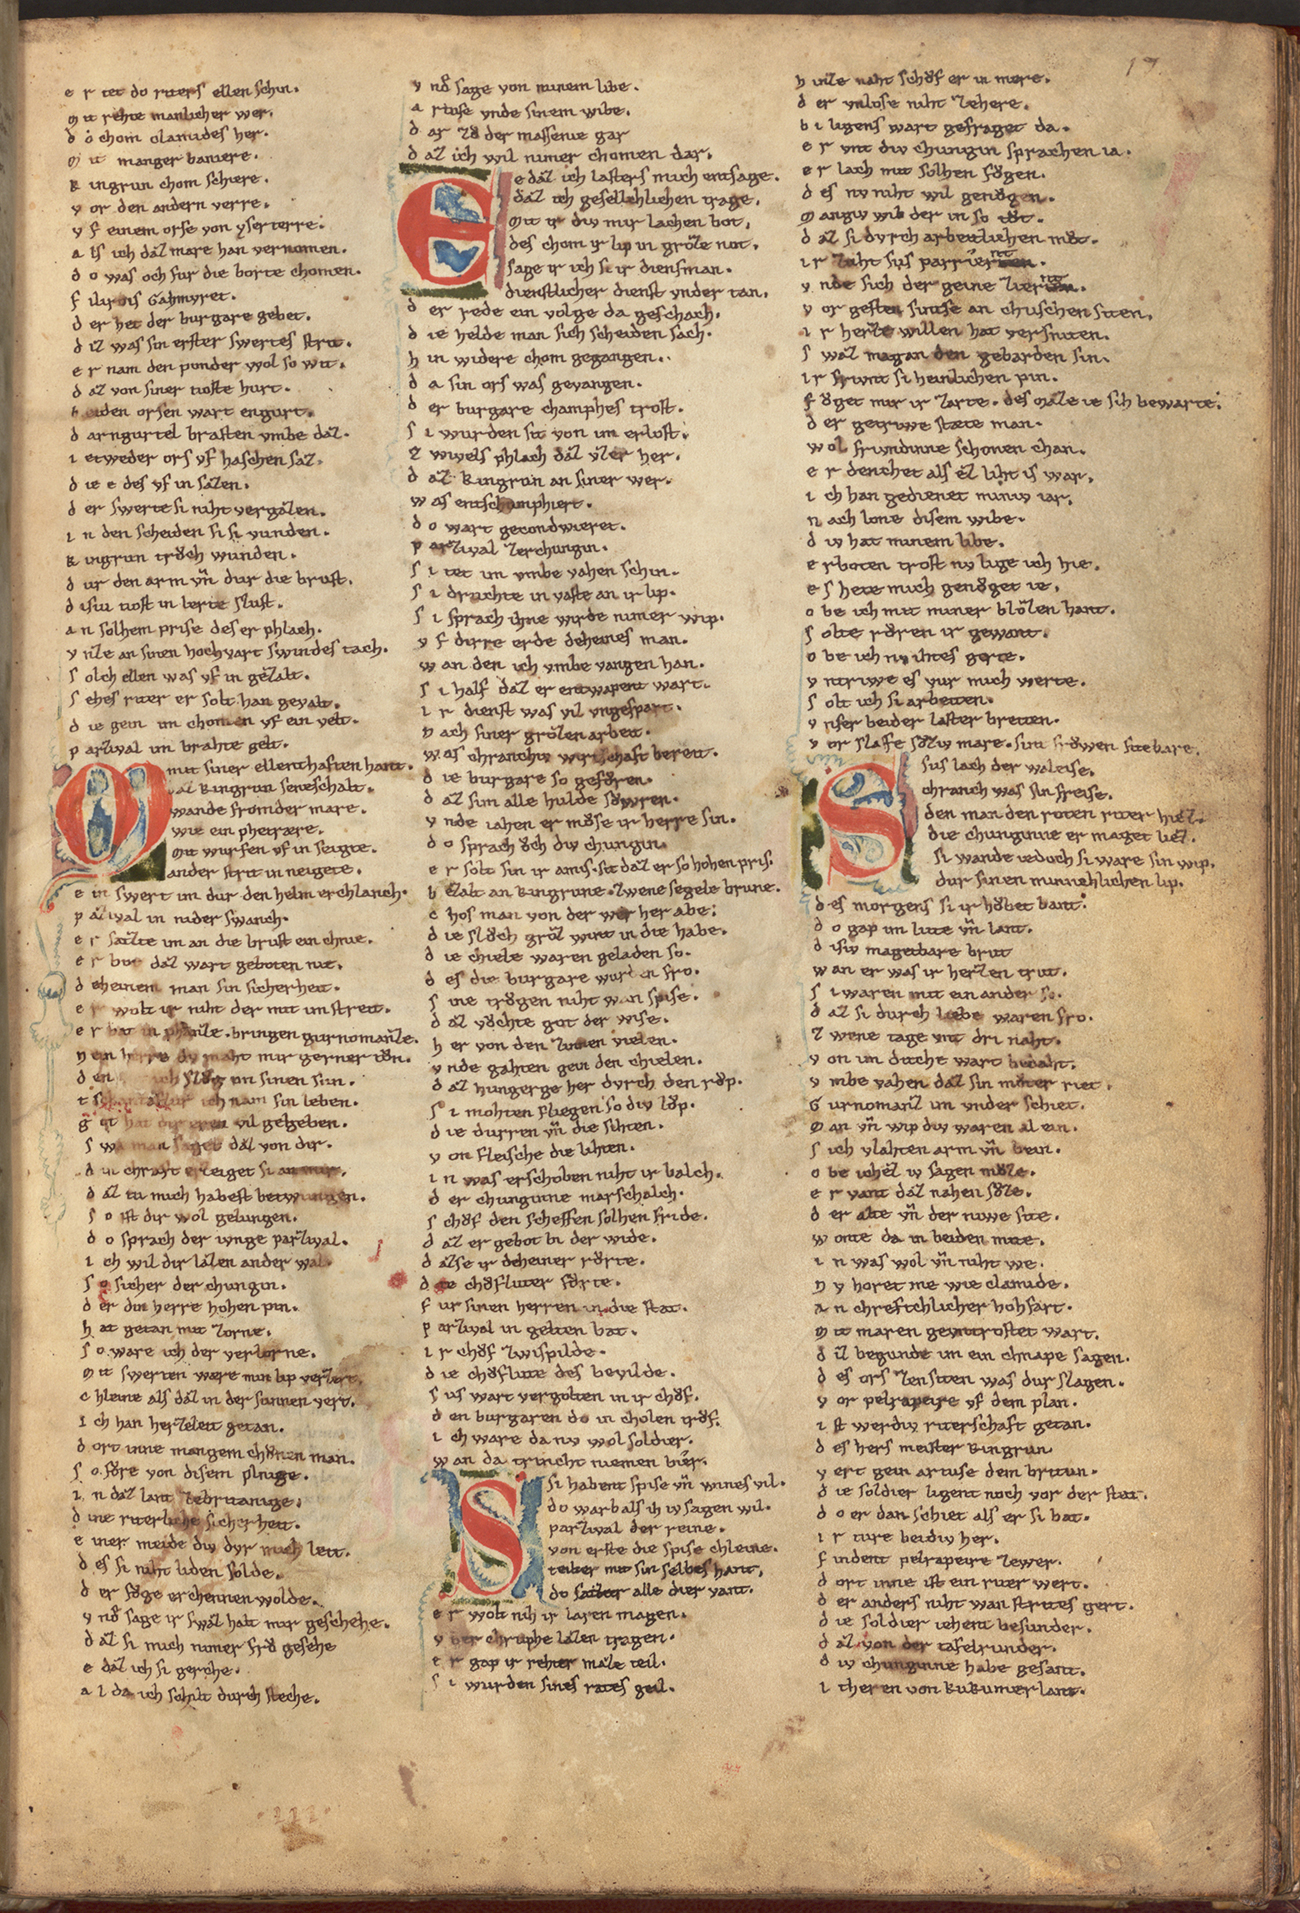 17
e r tet do riters ellen schin.
M it rehte manlicher wer.
d o chom olamides her.
M it manger baniere.
K ingrun chom schiere.
v or den andern verre.
v f einem orse von yserterre.
a ls ich daz mare han vernomen.
d o was och fur die borte chomen.
f ilurois Gahmuret.
d er het der burgare gebet.
d iz was sin erster swertes strit.
e r nam den ponder wol so wit.
d az von siner tioste hurt.
b eiden orsen wart engurt.
d arngurtel brasten umbe daz.
i etweder ors vf haschen saz.
d ie e des vf in sazen.
d er swerte si niht vergazen.
i n den scheiden si si vunden.
K ingrun troch wunden.
d ur den arm vn dur die brust.
d isiu tiost in lerte flust.
a n solhem prise des er phlach.
v nze an sinen hochvart swindes tach.
s olch ellen was vf in gezalt.
s ehes riter er solt han gevalt.
d ie gein im chomen vf ein velt.
p arzival im brahte gelt.
M mit siner ellenthaften hant.
daz Kingrun seneschalt.
wande fromder mare.
wie ein phetrære.
Mit wurfen vf in seigte.
ander strit in neigete.
e in swert im dur den helm erchlanch.
p arzival in nider swanch.
e r sazte im an die brust ein chnie.
e r bot daz wart geboten nie.
d eheinem man sin sicherheit.
e r wolt ir niht der mit im streit.
e r bat in phianze. bringen gurnomanze.
N ein herre dv maht mir gerner ton.
d en ich slog im sinen sun.
t schentaflur ich nam sin leben.
g ot hat dir eren vil gegeben.
s wa man saget daz von dir.
d in chraft erzeiget si an mir.
d az tu mich habest betwungen.
s o ist dir wol gelungen.
d o sprach der iunge parzival.
i ch wil dir lazen ander wal.
s o sicher der chungin.
d er din herre hohen pin.
h at getan mit zorne.
s o ware ich der verlorne.
M it swerten ware min lip verzert.
c hleine als daz in der sunnen vert.
I ch han herzeleit getan.
d ort inne mangem chönen man.
s o före von disem plange.
i n daz lant zebritanige.
d ine riterliche sicherheit.
e iner meide diu dvr mich leit.
d es si niht liden solde.
d er föge erchennen wolde.
v nd sage ir swaz halt mir geschehe.
d az si mich nimer fro gesehe
e daz ich si gereche.
a l da ich schilt durch steche.
v nd sage von minem libe.
a rtuse vnde sinem wibe.
d ar zo der massenie gar
d az ich wil nimer chomen dar.
E e daz ich lasters mich entsage.
daz ich gesellehlichen trage.
Mit ir diu mir lachen bot.
des chom ir lip in groze not.
sage ir ich si ir diensman.
dienstlicher dienst vnder tan.
d er rede ein volge da geschach.
d ie helde man sich scheiden sach.
h in widere chom gegangen.
d a sin ors was gevangen.
d er burgare champhes trost.
s i wurden sit von im erlost.
z wivels phlach daz vzer her.
d az Kingrun an siner wer.
w as entschumphiert.
d o wart gecondwieret.
p arzival zerchungin.
s i tet im vmbe vahen schin.
s i druchte in vaste an ir lip.
s i sprach ihne wirde nimer wip.
v f dirre erde deheines man.
w an den ich vmbe vangen han.
s i half daz er entwapent wart.
i r dienst was vil vngespart.
n ach siner grozen arbeit.
w as chranchiv wirtschaft bereit.
d ie burgare so geforen.
d az sim alle hulde swren.
v nde iahen er möse ir herre sin.
d o sprach öch div chungin
e r solt sin ir amis. sit daz er so hohen pris.
b ezalt an Kingrune. zwene segele brune.
c hos man von der wer her abe.
d ie slöch groz wint in die habe.
d ie chiele waren geladen so.
d es die burgare wurden fro.
s ine trögen niht wan spise.
d az vöchte got der wise.
h er von den zinnen vielen.
v nde gahten gein den chielen.
d az hungerge her dvrch den röp.
s i mohten fliegen so div löp.
d ie durren vn die sihten.
v on fleische die lihten.
i n was erschoben niht ir balch.
d er chunginne marschalch.
s chöf den scheffen solhen fride.
d az er gebot bi der wide.
d azse ir deheiner rörte.
d ie chöfluter förte.
f ur sinen herren in die stat.
p arzival in gelten bat.
i r chöf zwispilde.
d ie chöflute des bevilde.
s us wart vergolten in ir chöf.
d en burgaren do in cholen trof.
i ch ware da nv wol soldier.
w an da trincht niemen bier.
S si habent spise vn wines vil.
do warb als ih iv sagen wil.
parzival der reine.
von erste die spise chleine.
teilter mit sin selbes hant.
do sazter alle dier vant.
e r wolt nih ir laren magen.
v ber chruphe lazen tragen.
e r gap ir rehter maze teil.
s i wurden sines rates geil.
h inze naht schöf er in mere.
d er vnlose niht zehere.
b i ligens wart gefraget da.
e r vnt div chungin sprachen ia.
e r lach mit solhen fögen.
d es nv niht wil genögen.
M angiv wib der in so töt.
d az si dvrch arbeitlichen möt.
i r zuht sus parriernt.
v nde sich der geine zierent.
v or gesten sintse an chuschen siten.
i r herze willen hat versniten.
s waz magan den gebarden sin.
i r frivnt si heinlichen pin.
f öget mit ir zarte. des Maze ie sih bewarte.
d er getriwe stæte man.
w ol frivndinne schonen chan.
e r denchet als ez liht is war.
i ch han gedienet miniv iar.
n ach lone disem wibe.
d iv hat minem libe.
e rboten trost nv lige ich hie.
e s hete mich genöget ie.
o be ich mit miner blözen hant.
s olte rören ir gewant.
o be ich nv ihtes gerte.
v ntriwe es vur mich werte.
s olt ich si arbeiten.
v nser beider laster breiten.
v or slaffe söziv mare. sint fröwen site bare.
S sus lach der waleise.
chranch was sin freise.
den man den roten riter hiez.
die chunginne er maget liez.
si wande iedoch si ware sin wip.
dur sinen minnehlichen lip.
d es morgens si ir höbet bant.
d o gap im lute vn lant.
d isiv magetbare brut
w an er was ir herzen trut.
s i waren mit ein ander so.
d az si durch liebe waren fro.
z wene tage vnt dri naht.
v on im dicche wart bedaht.
v mbe vahen daz sin muter riet.
G urnomanz im vnder schiet.
M an vn wip div waren al ein.
s ich vlahten arm vn bein.
o be ichez iv sagen möze.
e r vant daz nahen söze.
d er alte vn der nuwe site.
w onte da in beiden mite.
i n was wol vn niht we.
n v horet me wie clamide.
a n chreftchlicher hohfart.
M it maren gevntrostet wart.
d iz begunde im ein chnape sagen.
d es ors zensiten was dur slagen.
v or pelrapeire vf dem plan.
i st werdiv riterschaft getan.
d es hers meister Kingrun
v ert gein artuse dem britun.
d ie soldier ligent noch vor der stat.
d o er dan schiet als er si bat.
i r ture beidiv her.
f indent pelrapeire zewer.
d ort inne ist ein riter wert.
d er anders niht wan strites gert.
d ie soldier iehent besunder.
d az von der tafelrunder.
d iv chunginne habe gesant.
i theren von kukumerlant.